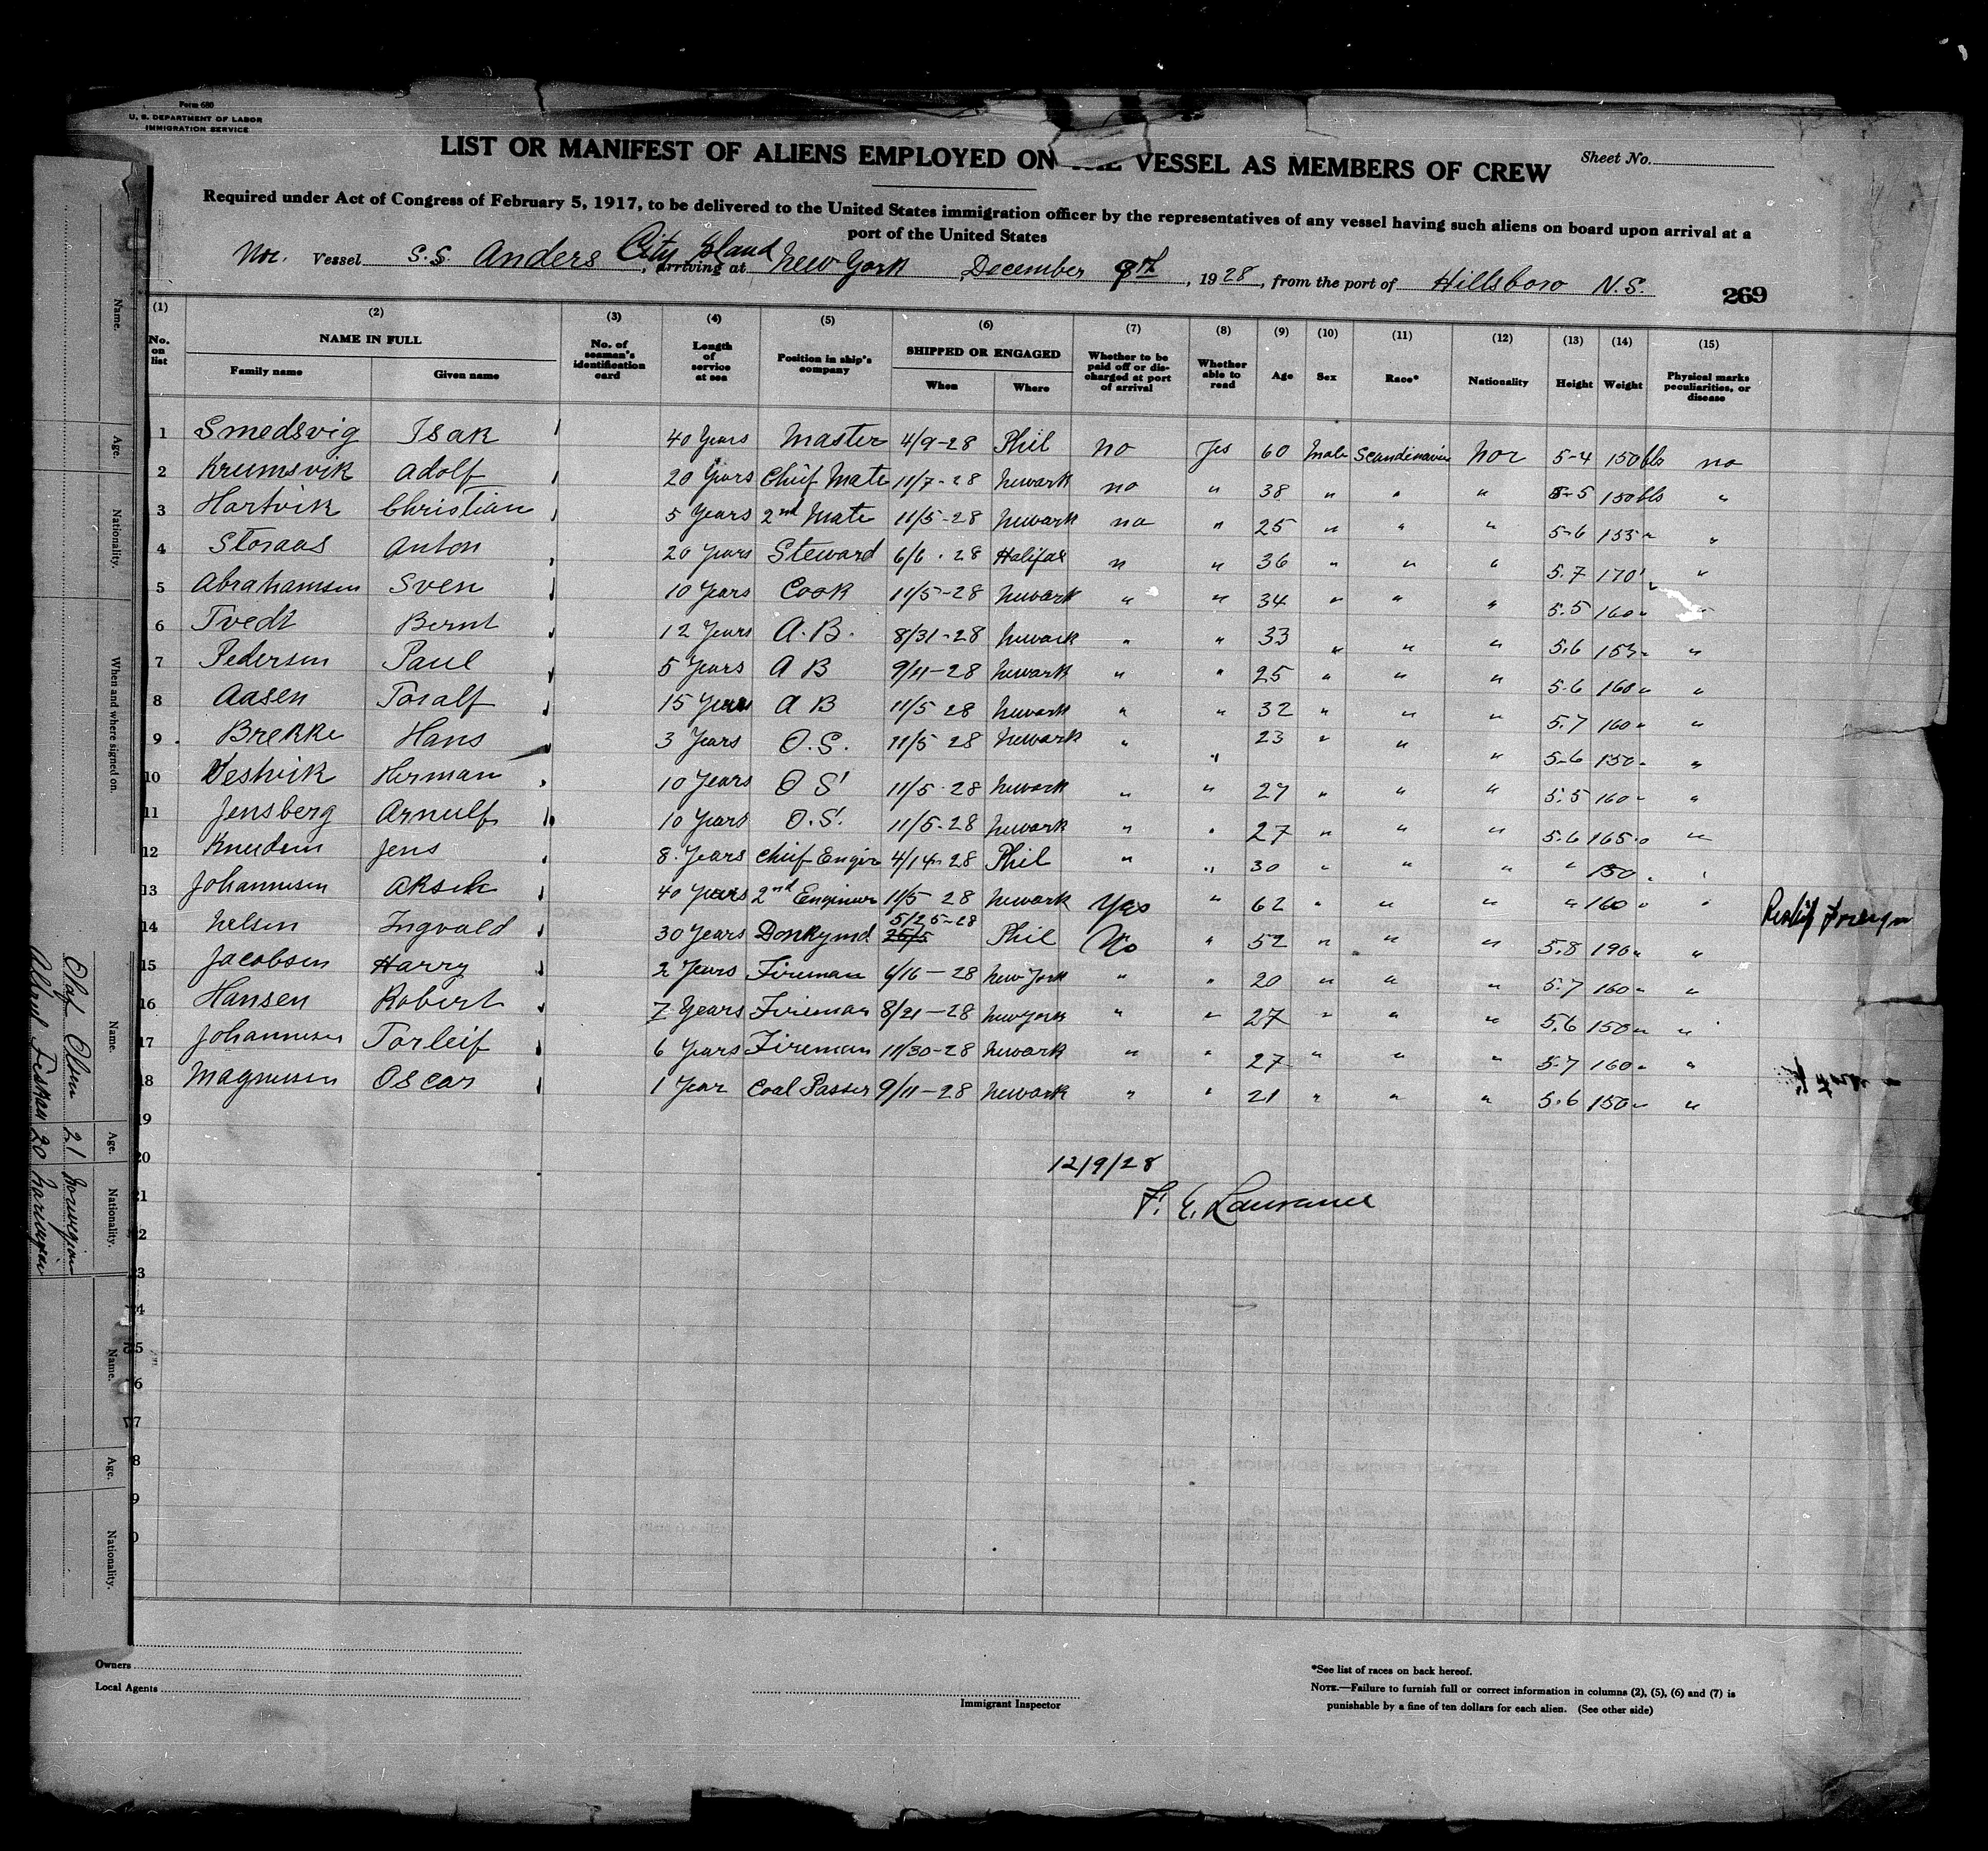 Form 680
U. S. DEPARTMENT OF LABOR
IMMIGRATION SERVICE
LIST OR MANIFEST OF ALIENS EMPLOYED ON THE VESSEL AS MEMBERS OF CREW
Sheet No.
Required under Act of Congress of February 5, 1917, to be delivered to the United States immigration officer by the representatives of any vessel having such aliens on board upon arrival at a
port of the United States
Nor. Vessel S.S. Anders, arriving at City Island New York, December 9th, 1928, from the port of Hillsboro N.S.
269
(1) (2) (3) (4) (5) (6) (7) (8) (9) (10) (11) (12) (13) (14) (15)
No. on list NAME IN FULL Family name Given name No. of seaman's identification card Length of service at sea Position in ship's company SHIPPED OR ENGAGED When Where Whether to be paid off or discharged at port of arrival Whether able to read Age Sex Race* Nationality Height Weight Physical marks peculiarities, or disease
1 Smedsvig Isak 40 Years Master 4/9-28 Phil no Yes 60 Male Scandinavian Nor 5-4 150 lbs no
2 Krumsvik Adolf 20 Years Chief Mate 11/7-28 Newark no " 38 " " " 5-5 150 lbs "
3 Hartvik Christian 5 Years 2nd Mate 11/5-28 Newark no " 25 " " " 5-6 155 " "
4 Storaas Anton 20 Years Steward 6/6-28 Halifax " " 36 " " " 5.7 170 " "
5 Abrahamsen Sven 10 Years Cook 11/5-28 Newark " " 34 " " " 5.5 160 " "
6 Tvedt Bernt 12 Years A.B. 8/31-28 Newark " " 33 " " " 5.6 153 " "
7 Pedersen Paul 5 Years A B 9/11-28 Newark " " 25 " " " 5.6 160 " "
8 Aasen Toralf 15 Years A B 11/5 28 Newark " " 32 " " " 5.7 160 " "
9 Brekke Hans 3 Years O.S. 11/5 28 Newark " " 23 " " " 5-6 150 " "
10 Vestvik Herman 10 Years O S 11/5-28 Newark " " 27 " " " 5.5 160 " "
11 Jensberg Arnulf 10 Years O.S. 11/5-28 Newark " " 27 " " " 5.6 165 " "
12 Knudsen Jens 8 Years Chief Engin 4/14-28 Phil " " 30 " " " " 150 " "
13 Johannesen 40 Years 2nd Engineer 11/5 28 Newark Yes " 62 " " " " 160 " "
14 Nelsen Ingvald 30 Years Donkymd 25/5 5/25-28 Phil No " 52 " " " 5.8 190 " "
15 Jacobsen Harry 2 Years Fireman 6/16-28 New York " " 20 " " " 5.7 160 " "
16 Hansen Robert 7 Years Fireman 8/21-28 New York " " 27 " " " 5.6 150 " "
17 Johannesen Torleif 6 Years Fireman 11/30-28 Newark " " 27 " " " 5.7 160 " "
18 Magnusen Oscar 1 Year Coal Passer 9/11-28 Newark " " 21 " " " 5.6 150 " "
19
20
12/9/28
F. E. Lawrance
Name. Age. Nationality. When and where signed on.
Name. Age. Nationality.
Olaf Olsen 21 Norwegian
20 Norwegian
Name. Age. Nationality.
Owners
Local Agents
Immigrant Inspector
*See list of races on back hereof.
NOTE.—Failure to furnish full or correct information in columns (2), (5), (6) and (7) is
punishable by a fine of ten dollars for each alien. (See other side)